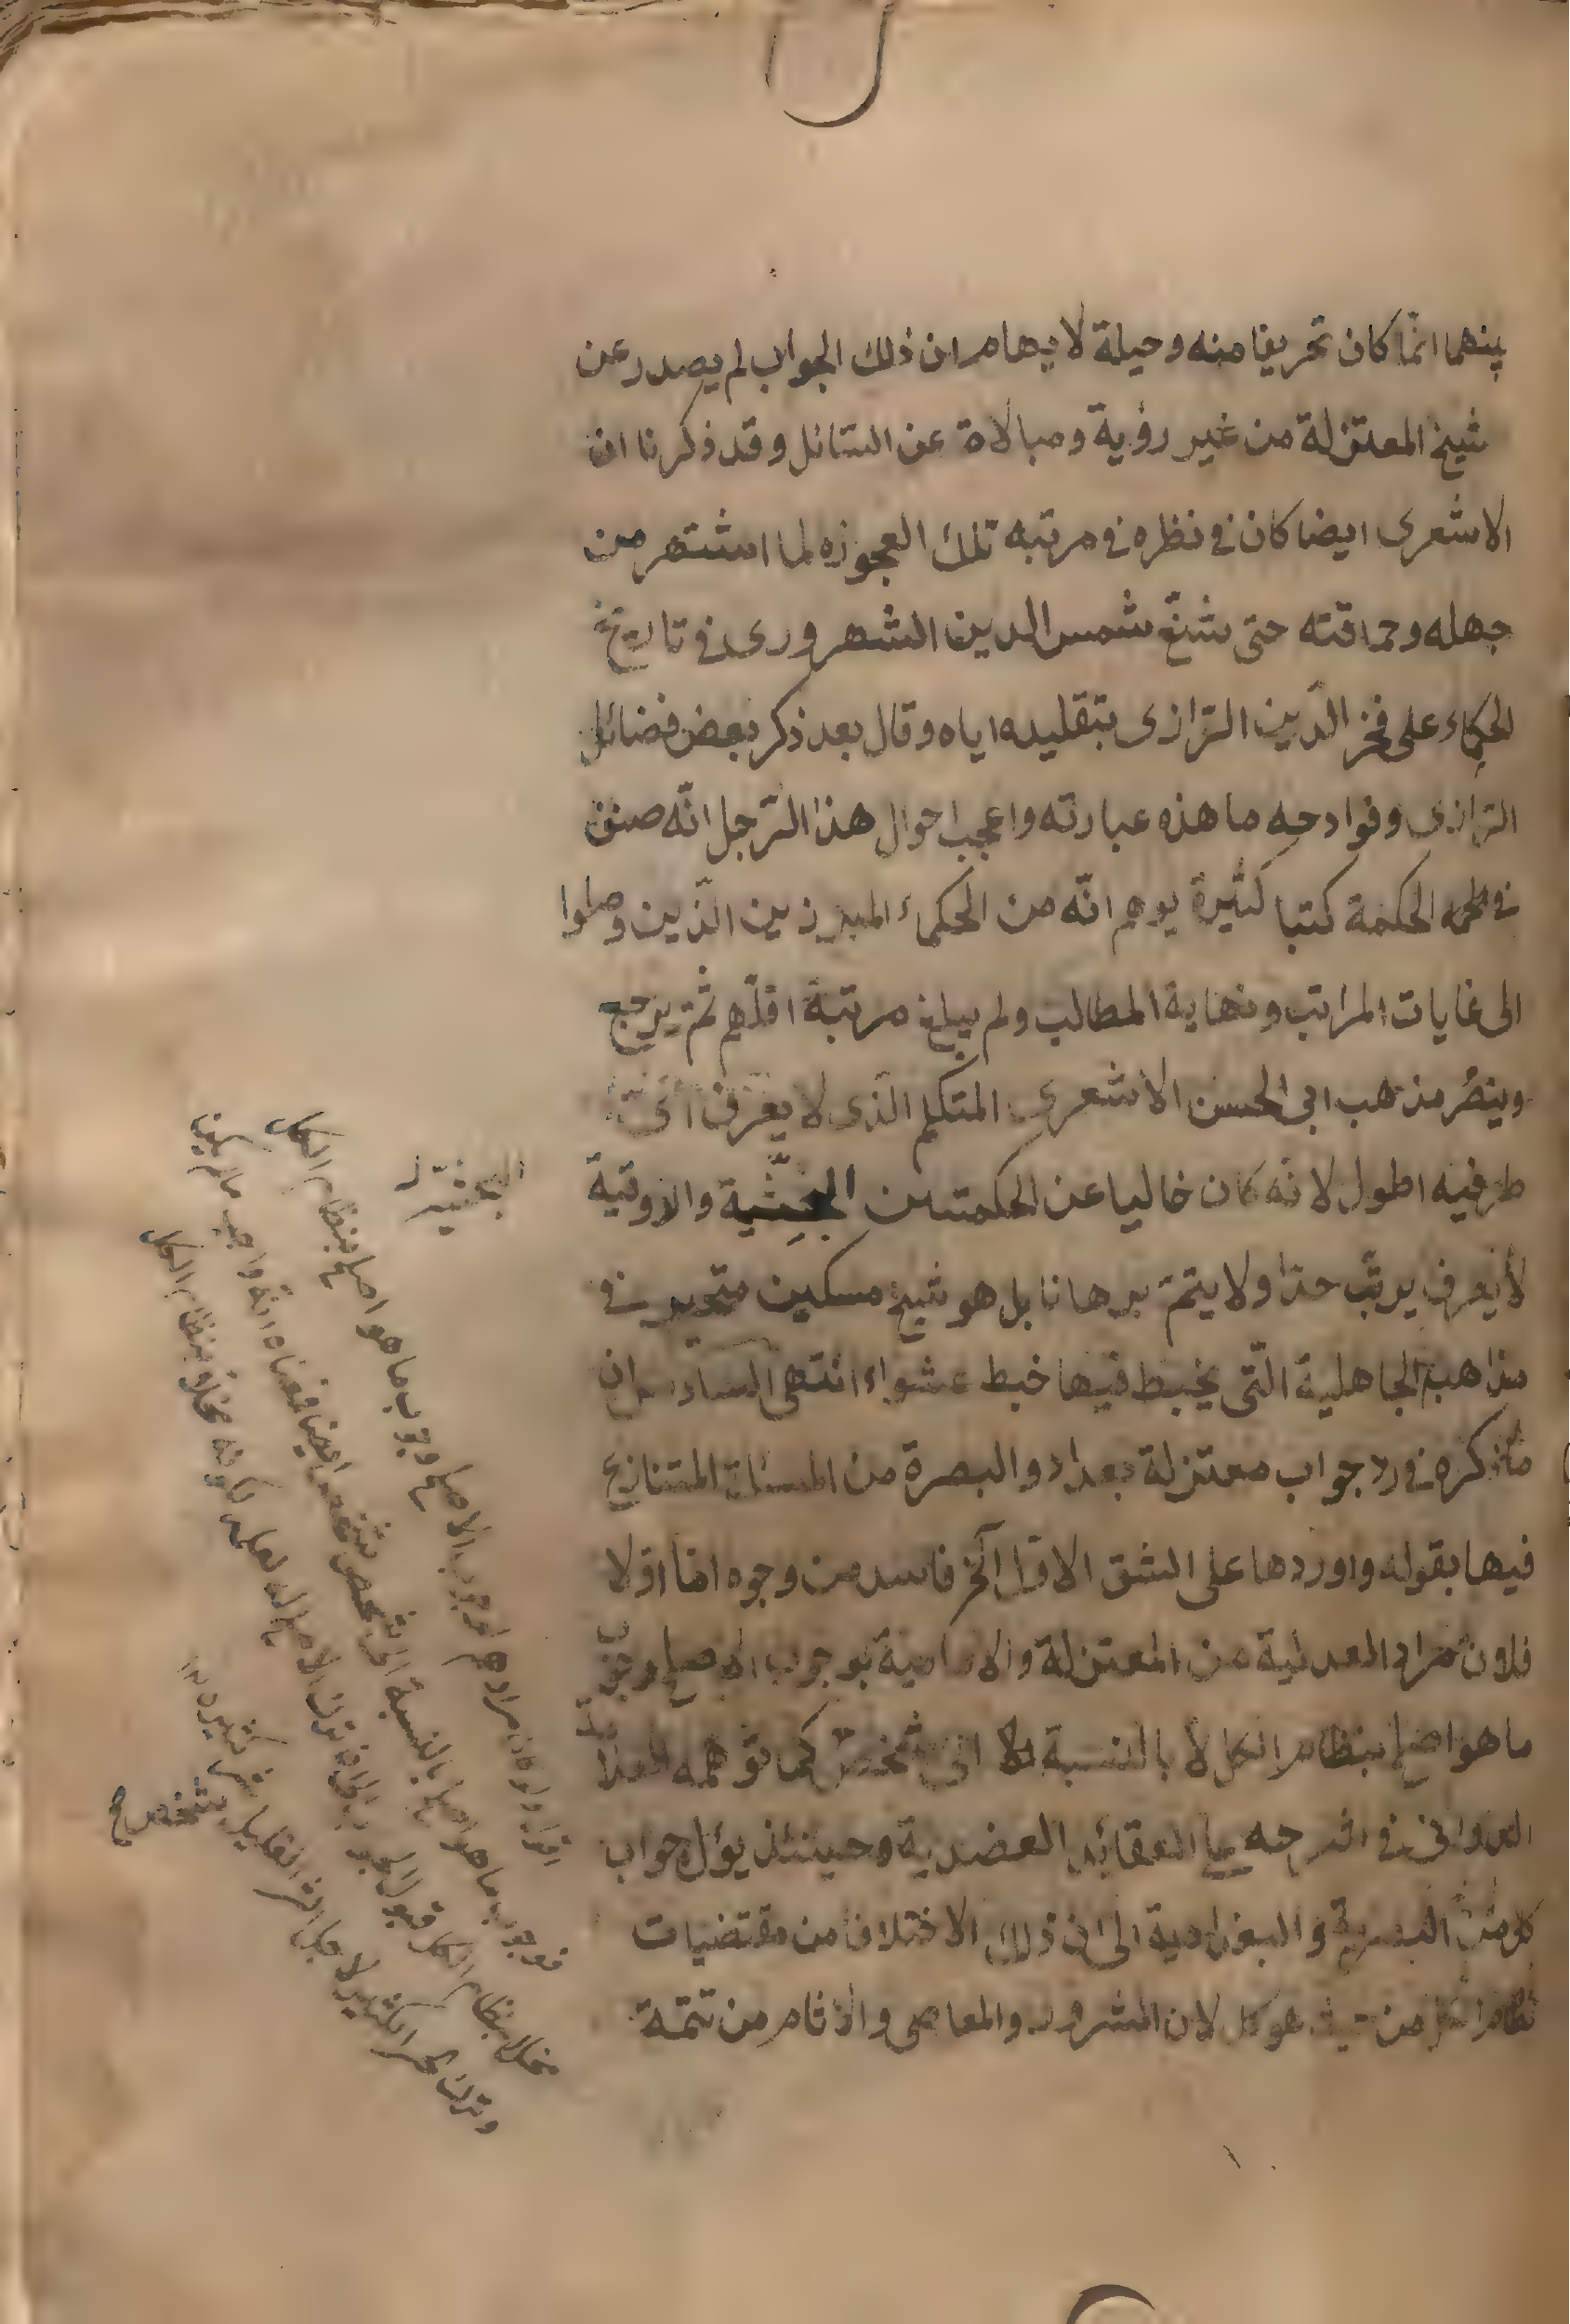 بينهما انّما كان تحريفا منه وحيلة لايهام ان ذلك الجواب لم يصدر عن
شيخ المعتزلة من غير رؤية ومبالاة عن السائل وقد ذكرنا ان
الاشعرى ايضا كان فى نظره فى مرتبه تلك العجوزه لما اشتهر من
جهله وحماقته حتى شنّع شمس الدين الشهرورى فى تاريخ
الحكماء على فخر الدّين الرّازى بتقليده اياه وقال بعد ذكر بعض فضائل
الرّازى وقوادحه ما هذه عبارته واعجب احوال هذا الرّجل انّه صنف
فى الحكمة كتبا كثيرة يوهم انّه من الحكماء المبرزين الّذين وصلوا
الى غايات المراتب ونهاية المطالب ولم يبلغ مرتبة اقلّهم ثمّ يرجع
وينصُر مذهب ابى الحسن الاشعرى المتكلم الّذى لا يعرف اىّ
طرفيه اطول لانّه كان خاليا عن الحكمتين البحثيّة والذوقية
لا يعرف يرتّب حدّا ولا يتمّ برهانا بل هو شيخ مسكين متحير فى
مذاهب الجاهلية الّتى يخبط فيها خبط عشواء انتهى السادس ان
ما ذكره فى رد جواب معتزلة بغداد والبصرة من المسئلة المتنازع
فيها بقوله واوردها على الشق الاول آخر فاسد من وجوه امّا اوّلا
فلان مراد العدلية من المعتزلة والامامية بوجوب الاصلح وجوب
ما هو اصلح بنظام الكل لا بالنسبة الى شخص كما توهمه العلّامة
الدوانى فى شرحه على العقائد العضدية وحينئذ يؤل جواب
البصرية والبغدادية الى ان ذلك الاختلاف من مقتضيات
نظام الكل من حيث هو كل لان الشرور والمعاصى والآثام من تتمّة
البحثيّة
مرادهم بوجوب الاصلح وجوب ما هو اصلح بنظام الكل
فوجوب ما هو اصلح بالنسبة الى شخص شخص ايضا معناه انّه واجب ما لم يكن
بنظام الكل
وترك الخير الكثير لاجل الشر القليل شر كثير